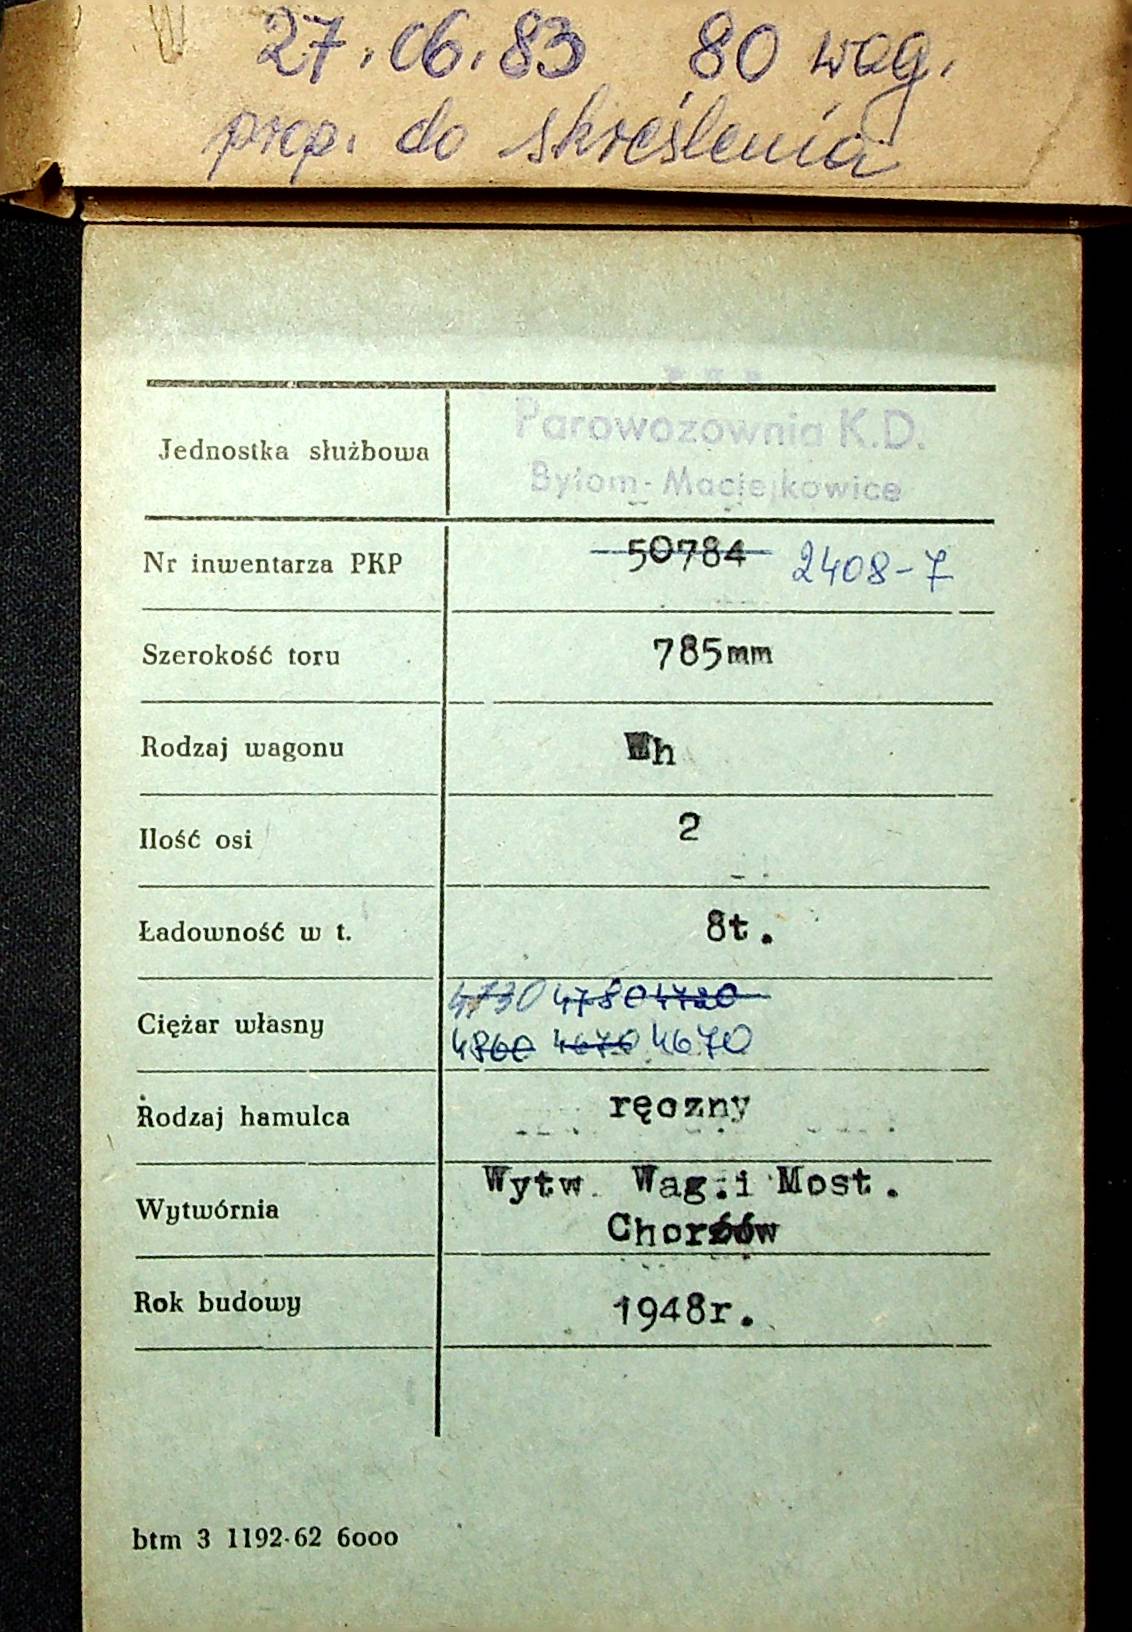 27.06.83 80 wag.
prop. do skreślenia
P.K.P.
Parowozownia K.D.
Bytom-Maciejkowice
Jednostka służbowa
Nr inwentarza PKP 50784 2408-7
Szerokość toru 785mm
Rodzaj wagonu Wh
Ilość osi 2
Ładowność w t. 8t.
4730 4780 4720
Ciężar własny
4860 4670 4670
Rodzaj hamulca ręczny
Wytw. Wag.i Most.
Wytwórnia
Chorzów
Rok budowy 1948r.
btm 3 1192-62 6000